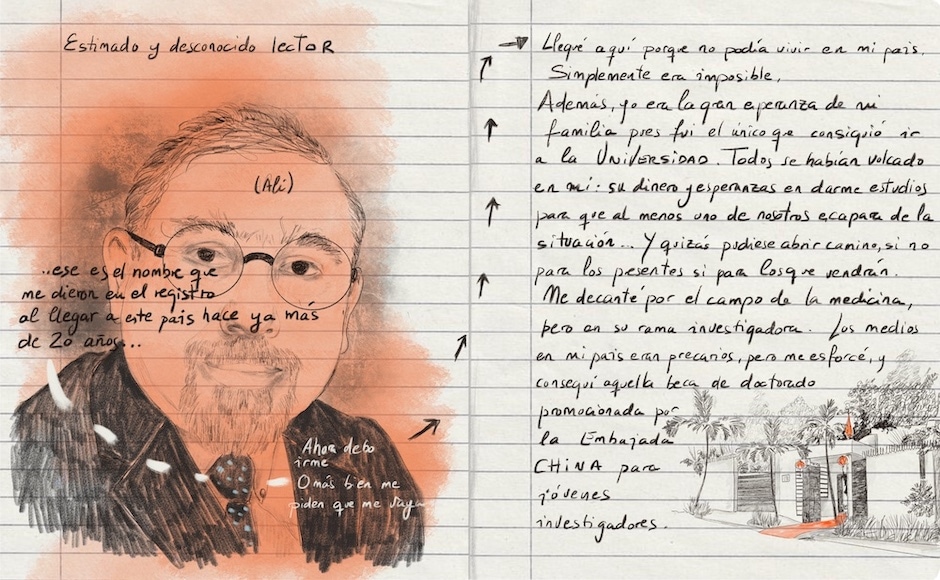 Estimado y desconocido lector
(Ali)
..ese es el nombre que
me dieron en el registro
al llegar a este pais hace ya más
de 20 años...
Ahora debo
irme
O más bien me
piden que me vaya
Llegué aquí porque no podía vivir en mi pais.
Simplemente era imposible.
Además, yo era la gran esperanza de mi
familia pues fui el único que consiguió ir
a la UNIVERSIDAD. Todos se habían volcado
en mi: su dinero y esperanzas en darme estudios
para que al menos uno de nosotros escapara de la
situación... Y quizás pudiese abrir camino, si no
para los presentes si para los que vendrán.
Me decanté por el campo de la medicina,
pero en su rama investigadora. Los medios
en mi pais eran precarios, pero me esforcé, y
conseguí aquella beca de doctorado
promocionada por
la Embajada
CHINA para
jóvenes
investigadores.